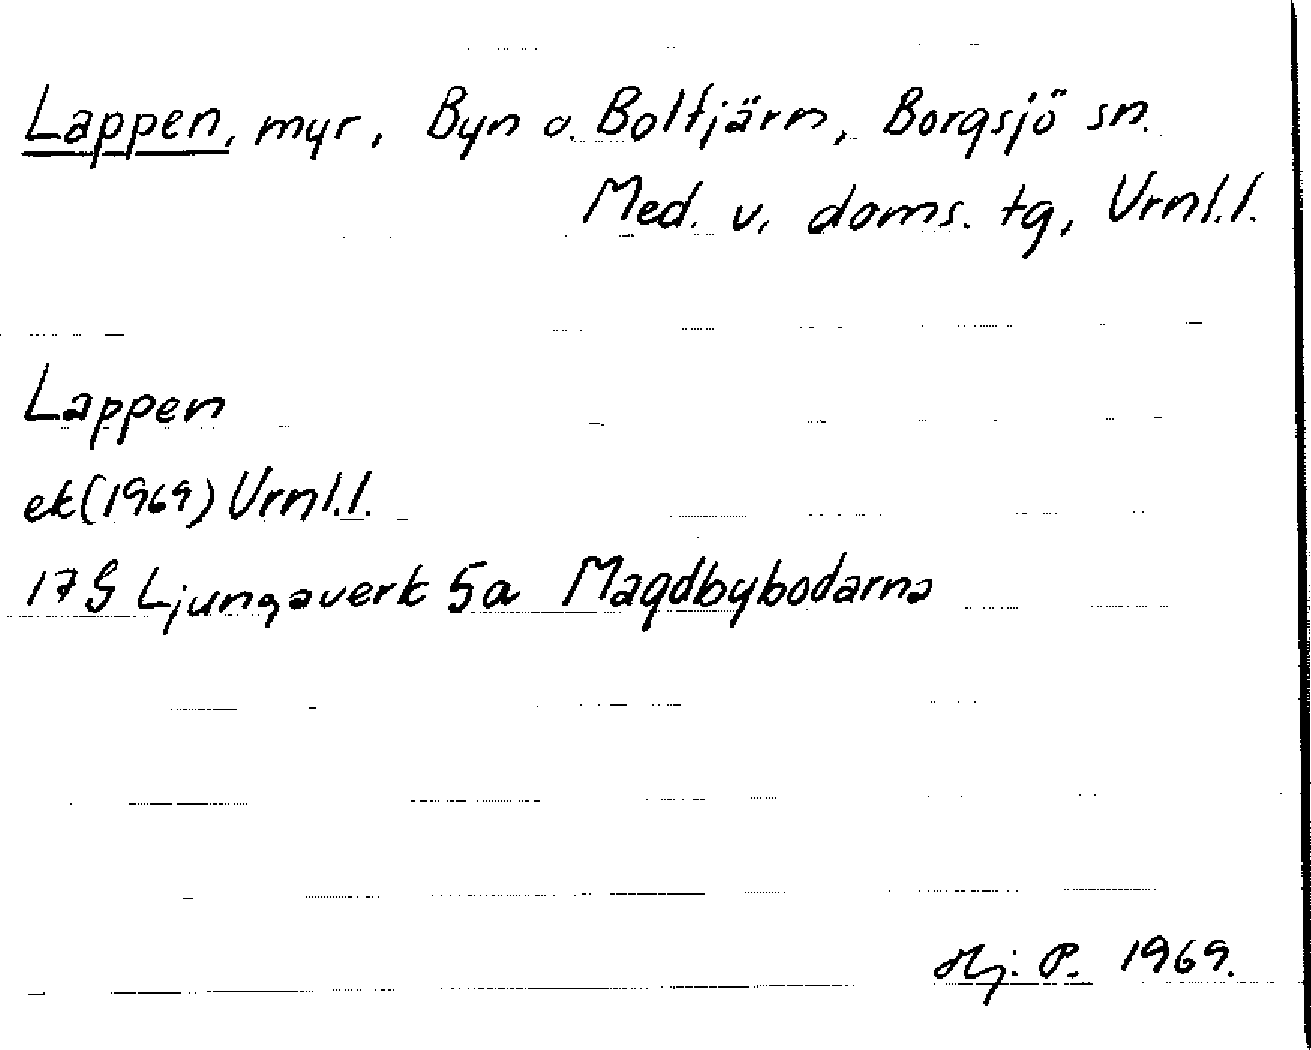 Lappen, myr, Byn o. Boltjärn, Borgsjö sn.
Med. v. doms. tg, Vrnl.l.
Lappen
ek (1969) Vrnl.l.
17G Ljungaverk 5a Magdbybodarna
Hj. P. 1969.